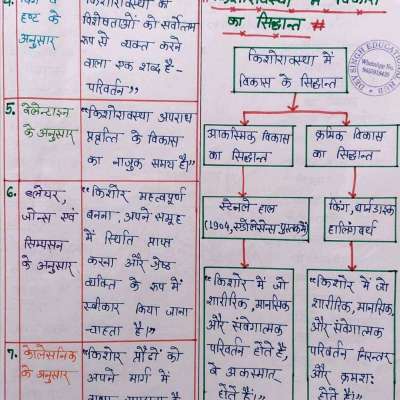 दृष्ट के
अनुसार
विशेषताओं को सर्वोत्तम
रूप से व्यक्त करने
वाला एक शब्द है -
परिवर्तन"
5. वेलेन्टाइन
के अनुसार
"किशोरावस्था अपराध
प्रवृत्ति के विकास
का नाजुक समय है।"
6. ब्लेयर,
जोन्स एवं
सिम्पसन
के अनुसार
"किशोर महत्वपूर्ण
बनना, अपने समूह
में स्थिति प्राप्त
करना और श्रेष्ठ
व्यक्ति के रूप में
स्वीकार किया जाना
चाहता है।"
7. कोलेसनिक
के अनुसार
"किशोर प्रौढ़ों को
अपने मार्ग में
का सिद्धान्त #
किशोरावस्था में
विकास के सिद्धान्त
आकस्मिक विकास
का सिद्धान्त
क्रमिक विकास
का सिद्धान्त
स्टेनले हाल
(1904, एडोलेसेन्स पुस्तक में)
किंग, थार्नडाइक
हालिंगवर्थ
"किशोर में जो
शारीरिक, मानसिक
और संवेगात्मक
परिवर्तन होते है,
वे अकस्मात
होते है।"
"किशोर में जो
शारीरिक, मानसिक,
और संवेगात्मक
परिवर्तन निरन्तर
और क्रमशः
होते है।"